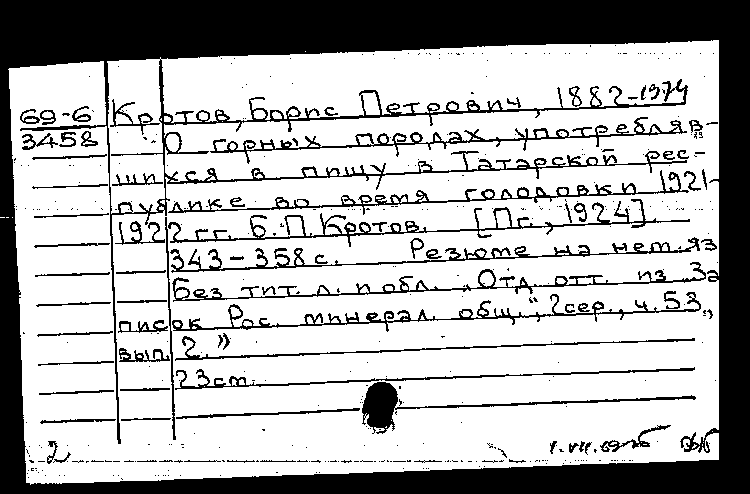 69-6 Кротов, Борис Петрович, 1882-1974
3458 О горных породах, употребляв-
шихся в пищу в Татарской рес-
публике во время голодовки 1921-
1922 гг. Б. П. Кротов. [Пг., 1924].
343-358 с. Резюме на нем. яз
Без тит. л. и обл. „Отд. отт. из За
писок Рос. минерал. общ.", 2 сер., ч. 53.,
вып. 2."
23 см.
2